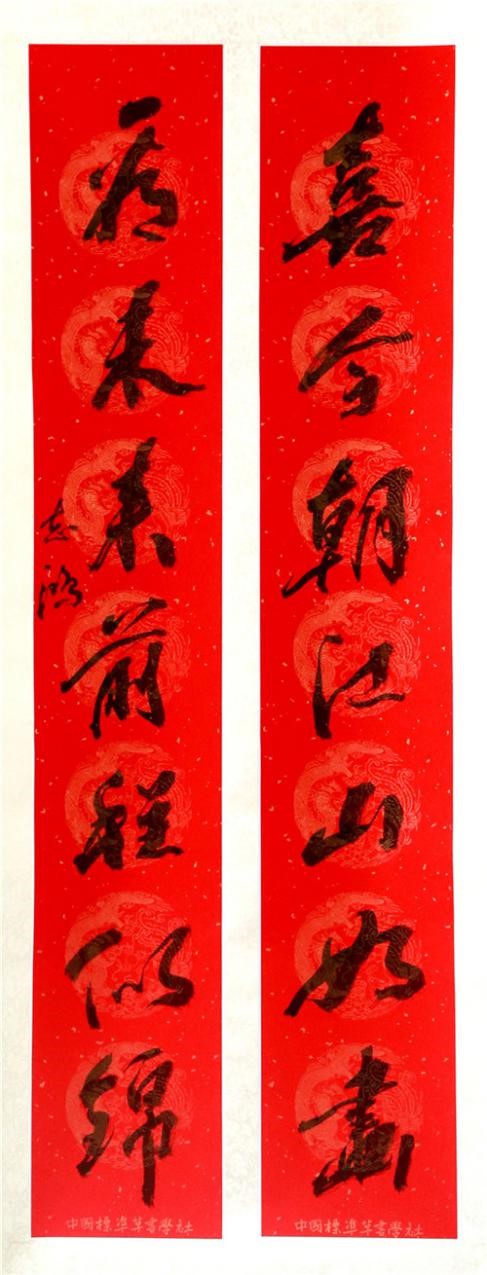 喜今朝江山如畫
看未來前程似錦
志鴻
中國標準草書學社
中國標準草書學社